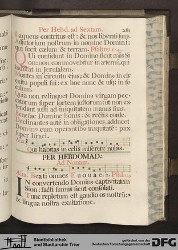 Per Hebd. ad Sextam
laqueus contritus est: & nos liberati sumus
Adjutorium nostrum in nomine Domini:
qui fecit cælum & terram. Psalmus
Qui confidunt in Domino sicut mons
qui habitat
in Jerusalem.
Montes in circuitu ejus: & Dominus in cir-
cuitu populi sui: ex hoc nunc & usque in
sæculum.
Quia non relinquet Dominus virgam pec-
catorum super sortem justorum: ut non ex-
tendant justi ad iniquitatem manus suas.
Benefac Domine: bonis & rectis corde.
Declinantes autem in obligationes, adducet
Dominus cum operantibus iniquitatem: pax
Qui habitas in cælis miserere nobis.
PER HEBDOMAD:
Ad Nonam.
In convertendo Dominus captivitatem
Sion: facti sumus sicut consolati.
Tunc repletum est gaudio os nostrum:
& lingua nostra exultatione.
Stadtbibliothek
und Stadtarchiv Trier
gefördert von der
Deutschen Forschungsgemeinschaft
DFG